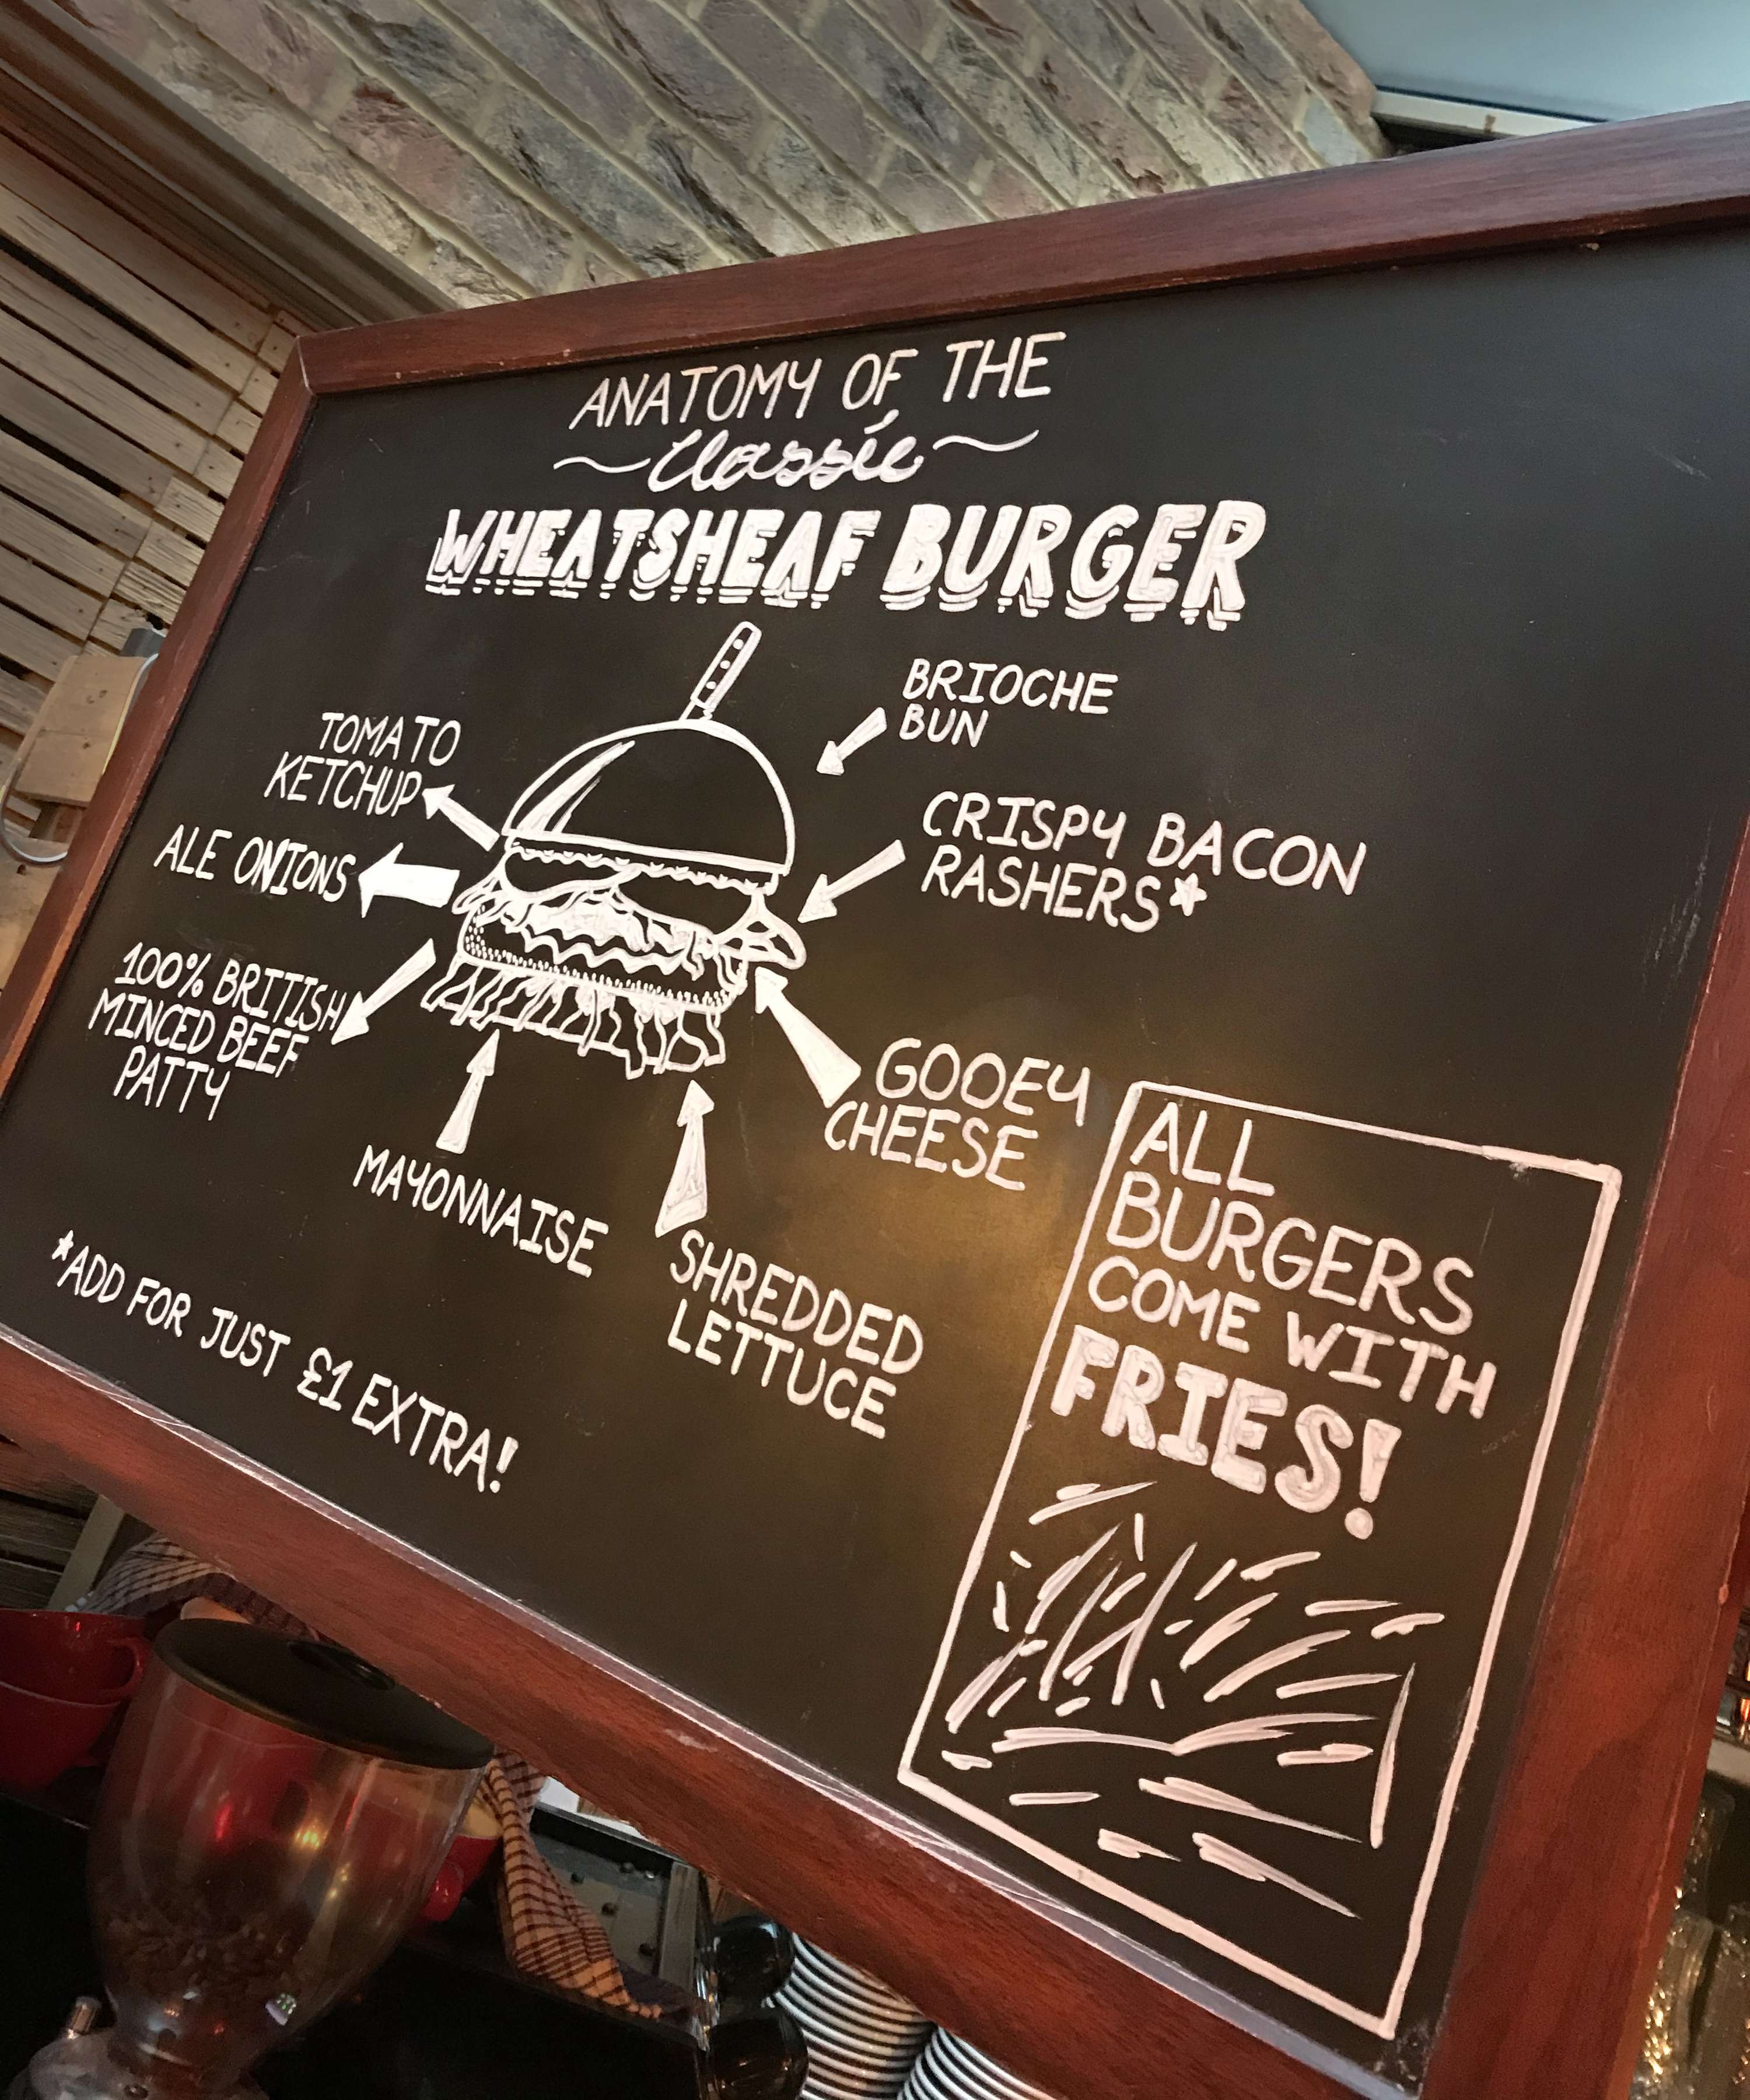 ANATOMY OF THE
~Classic~
WHEATSHEAF BURGER
BRIOCHE
BUN
TOMATO
KETCHUP
CRISPY BACON
RASHERS*
ALE ONIONS
100% BRITISH
MINCED BEEF
PATTY
GOOEY
CHEESE
MAYONNAISE
SHREDDED
LETTUCE
*ADD FOR JUST £1 EXTRA!
ALL
BURGERS
COME WITH
FRIES!